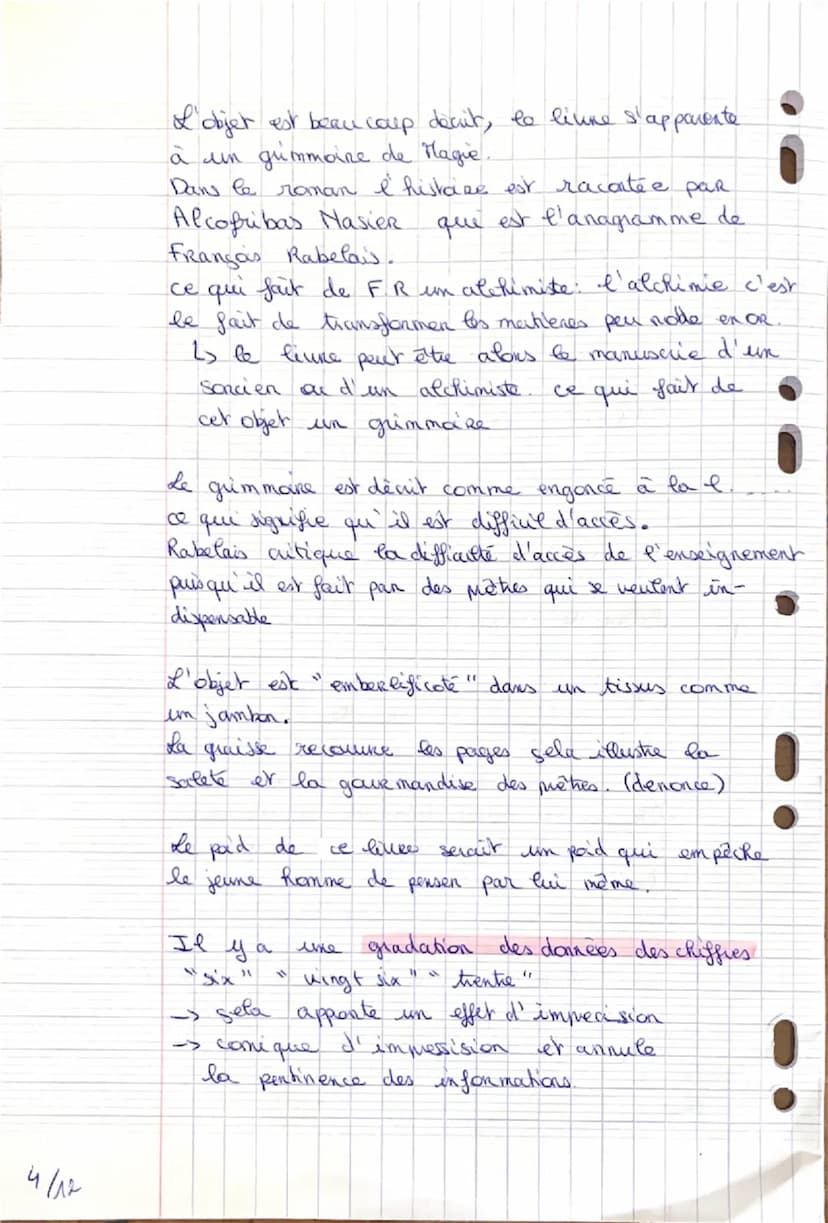 L'objet est beaucoup décrit, le livre s'apparente
à un grimmoire de Magie.
Dans le roman l'histoire est racontée par
Alcofribas Nasier qui est l'anagramme de
François Rabelais.
ce qui fait de F.R un alchimiste: l'alchimie c'est
le fait de transformer les matières peu noble en OR.
↳ le livre peut être alors le manuscrie d'un
sorcier ou d'un alchimiste. ce qui fait de
cet objet un grimmoire
Le grimmoire est décrit comme engoncé à la l. .....
ce qui signifie qu'il est difficile d'accès.
Rabelais critique la difficulté d'accès de l'enseignement
puisqu'il est fait par des prêtres qui se veulent in-
dispensable
L'objet est "emberlificoté" dans un tissus comme
un jambon.
La graisse recouvre les pages sela illustre la
saleté et la gourmandise des prêtres. (denonce)
Le poid de ce livre serait un poid qui empêche
le jeune homme de penser par lui même.
Il y a une gradation des données des chiffres
"six" "vingt six" "trentre"
→ sela apporte un effet d'imprecision
→ comique d'impressision et annule
la pertinence des informations.
4/12